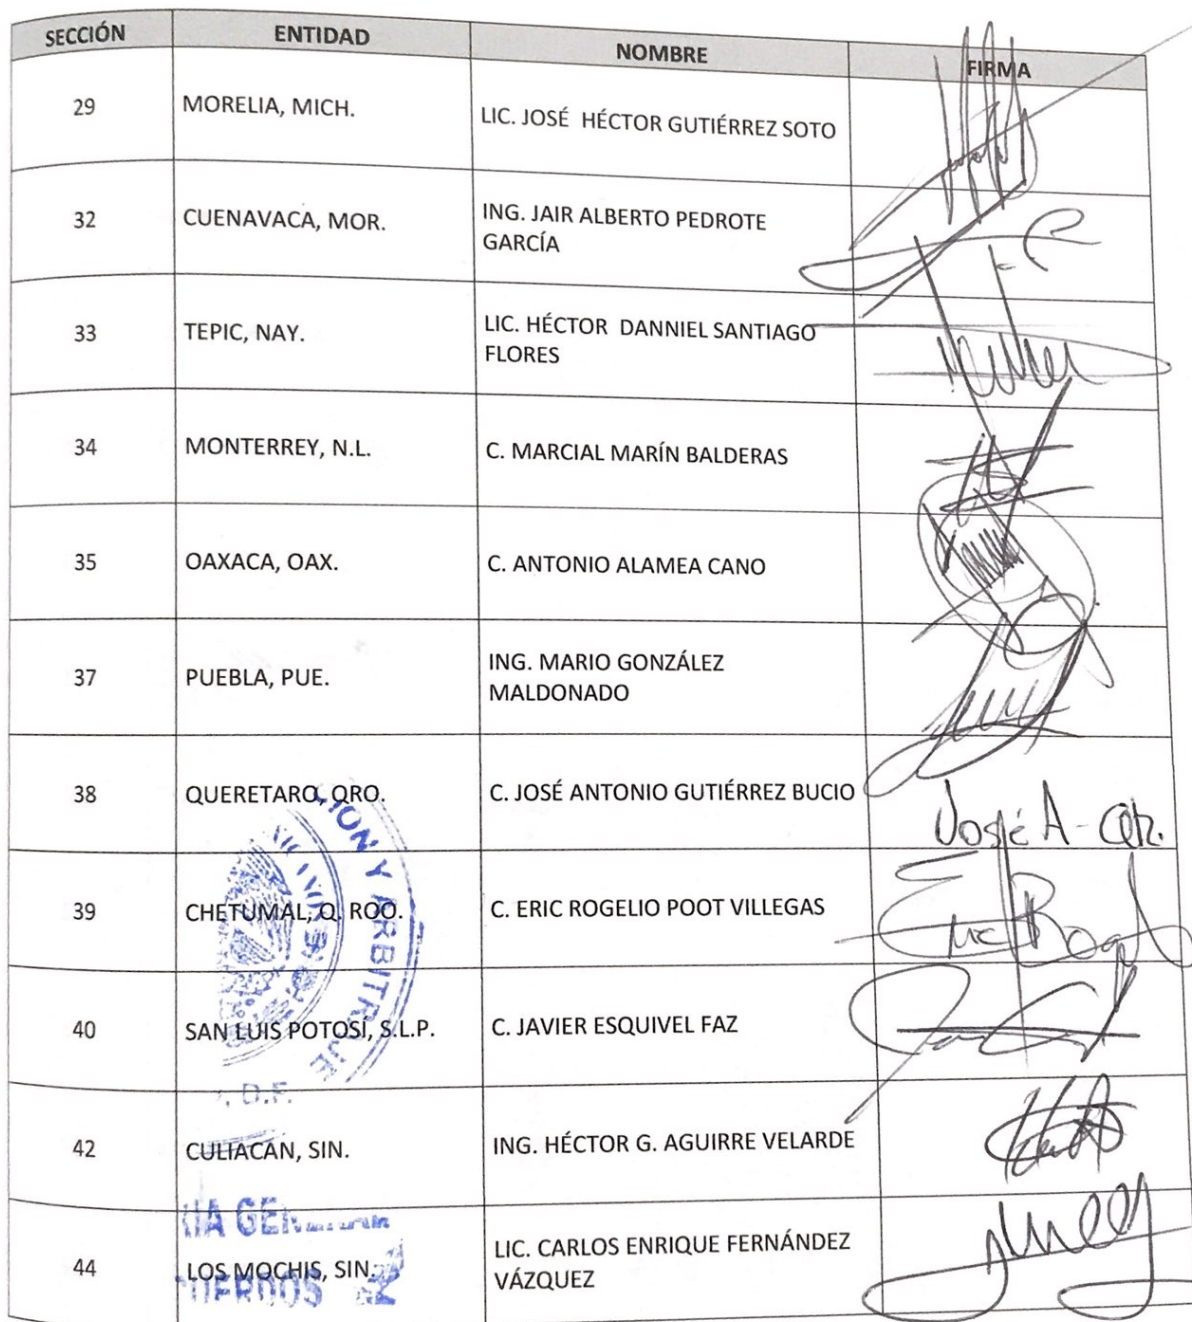 SECCIÓN ENTIDAD NOMBRE FIRMA
29 MORELIA, MICH. LIC. JOSÉ HÉCTOR GUTIÉRREZ SOTO
32 CUENAVACA, MOR. ING. JAIR ALBERTO PEDROTE
GARCÍA
33 TEPIC, NAY. LIC. HÉCTOR DANNIEL SANTIAGO
FLORES
34 MONTERREY, N.L. C. MARCIAL MARÍN BALDERAS
35 OAXACA, OAX. C. ANTONIO ALAMEA CANO
37 PUEBLA, PUE. ING. MARIO GONZÁLEZ
MALDONADO
38 QUERETARO, QRO. C. JOSÉ ANTONIO GUTIÉRREZ BUCIO José A-
39 CHETUMAL, Q. ROO. C. ERIC ROGELIO POOT VILLEGAS
40 SAN LUIS POTOSÍ, S.L.P. C. JAVIER ESQUIVEL FAZ
42 CULIACAN, SIN. ING. HÉCTOR G. AGUIRRE VELARDE
44 LOS MOCHIS, SIN. LIC. CARLOS ENRIQUE FERNÁNDEZ
VÁZQUEZ
Y ARBITRAJE
D.F.